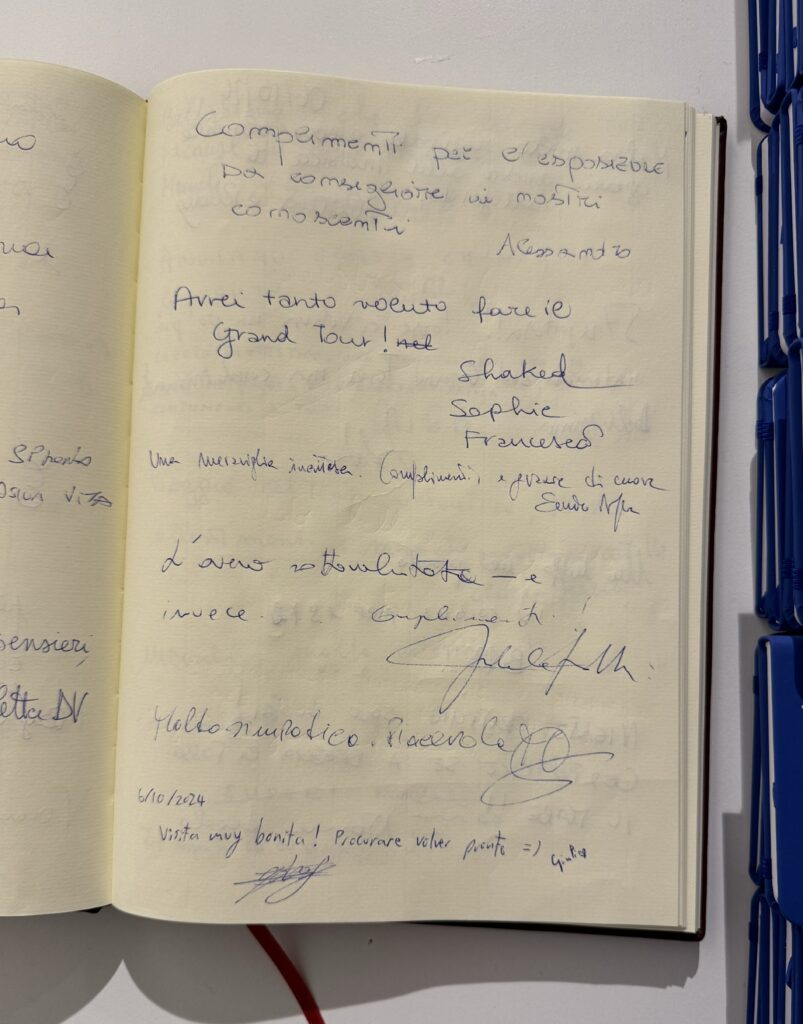 Complimenti per l'esposizione
Da consigliare ai nostri
conoscenti
Alessandro
Avrei tanto voluto fare il
Grand Tour!
Shaked
Sophie
Francesco
Una meraviglia inattesa. Complimenti, e grazie di cuore
L'avevo sottovalutata – e
invece. Complimenti!
Molto simpatico. Piacevole
6/10/2024
Visita muy bonita! Procurare volver pronto =)
pensieri,
etta DV